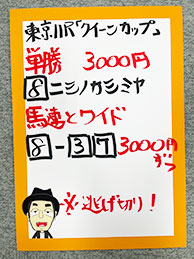 東京11R「クイーンカップ」
単勝 3000円
8 ニシノカシミヤ
馬連とワイド
8-3 7 3000円ずつ
※逃げ切り!